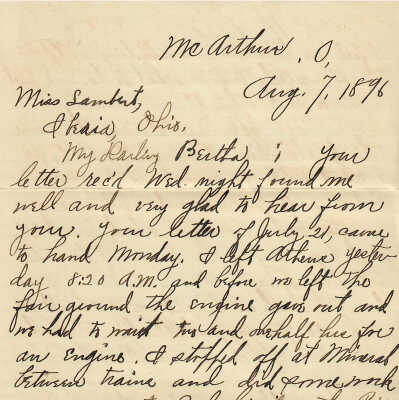 Mc Arthur, O,
Aug. 7, 1896
Miss Lambert,
Ohio.
My Darling Bertha ; Your
letter rec'd Wed. night found me
well and very glad to hear from
your. Your letter of July, 21, came
to hand Monday. I left Athens yester
day 8:20 A.M. and before we left the
fair ground the engine gave out and
we had to wait two and onehalf hrs for
an Engine. I stopped off at Mineral
between trains and did some work